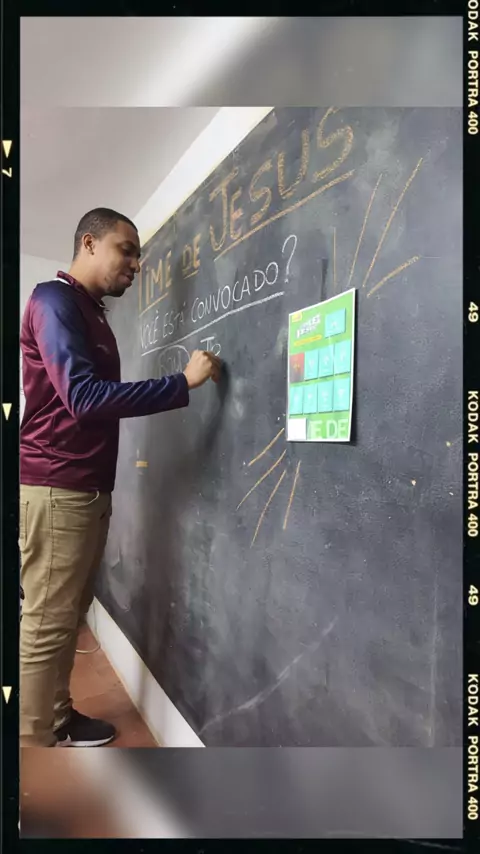 TIME DE JESUS
VOCÊ ESTÁ CONVOCADO?
IE DE
KODAK PORTRA 400
49
KODAK PORTRA 400
49
KODAK PORTRA 400
7